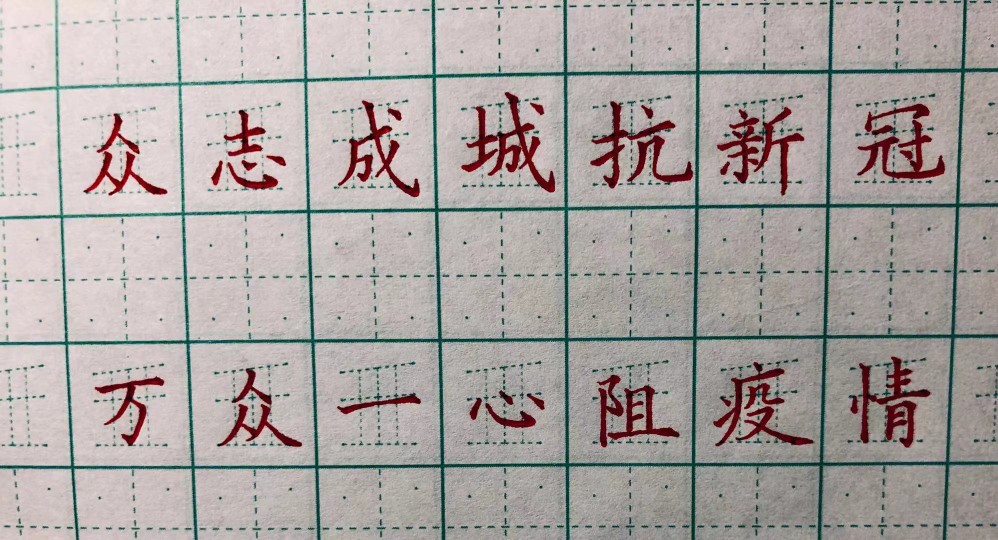 众志成城抗新冠
万众一心阻疫情